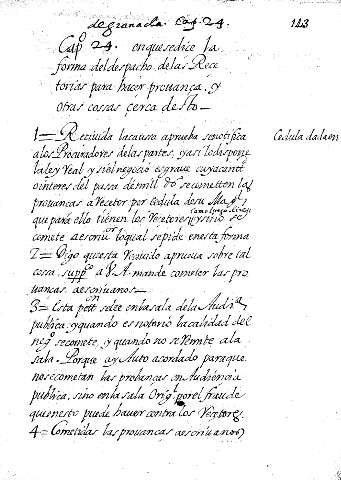 de granada. Cap. 24. 113
Cap.º 24. en que se dice la
forma del despacho de las Rece
torias para hacer prouança, y
otras cossas çerca desto —
1 = Reciuida la causa aprueba se notifica
a los Procuradores de las partes, y asi lo dispone
la ley Real y si el negoçio es graue cuya cant.ᵈ
o interes del passa de mill d.ºˢ se cometten las
prouanças a Recetor por Cedula de su Mag.ᵈ
que para ello tienen los Recetores, y si no se
comete a escriu.ⁿᵒ lo qual se pide en esta forma
Cedula dada en
2 = Digo questa Reciuido aprueua sobre tal
cossa, supp.ᶜᵒ a V. A. mande cometer las pro
uanças a escriuanos —
3 = Esta pett.ᵒⁿ se lee en la sala de la Audi.ª
publica, y quando es notorio la calidad del
neg.º se comete, y quando no se Remite a la
sala. Porque ay Auto acordado para que
no se cometan las probanças en Audiencia
publica, sino en la sala Orig.ˡ por el fraude
que en esto puede hauer contra los Recetores.
4 = Cometidas las prouanças a escriuanos